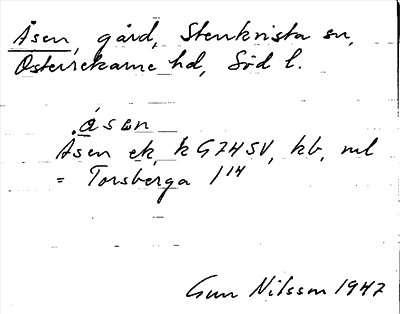 Åsen, gård, Stenkvista sn,
Österrekarne hd, Söd l.
åsɛn
Åsen ek, k GZHSV, kb, ml
= Torsberga 1¹⁴
Gun Nilsson 1947